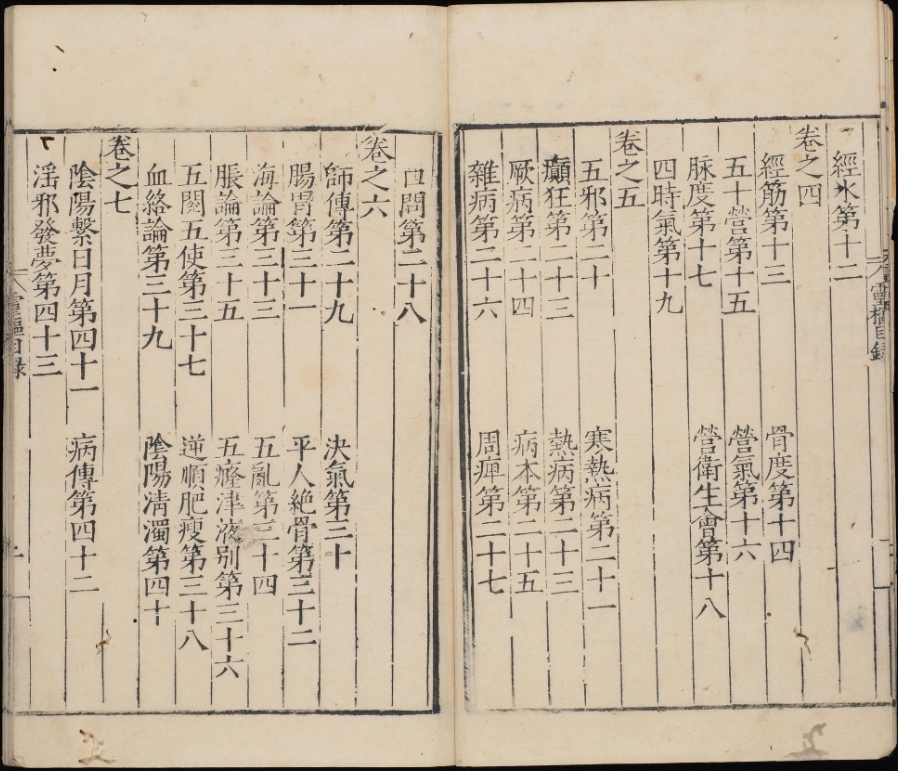 靈樞目録
經水第十二
卷之四
經筋第十三 骨度第十四
五十營第十五 營氣第十六
脉度第十七 營衛生會第十八
四時氣第十九
卷之五
五邪第二十 寒熱病第二十一
癲狂第二十三 熱病第二十三
厥病第二十四 病本第二十五
雜病第二十六 周痺第二十七
口問第二十八
卷之六
師傳第二十九 決氣第三十
腸胃第三十一 平人絶骨第三十二
海論第三十三 五亂第三十四
脹論第三十五 五癃津液别第三十六
五閱五使第三十七 逆順肥瘦第三十八
血絡論第三十九 陰陽清濁第四十
卷之七
陰陽繫日月第四十一 病傳第四十二
淫邪發夢第四十三
靈樞目録